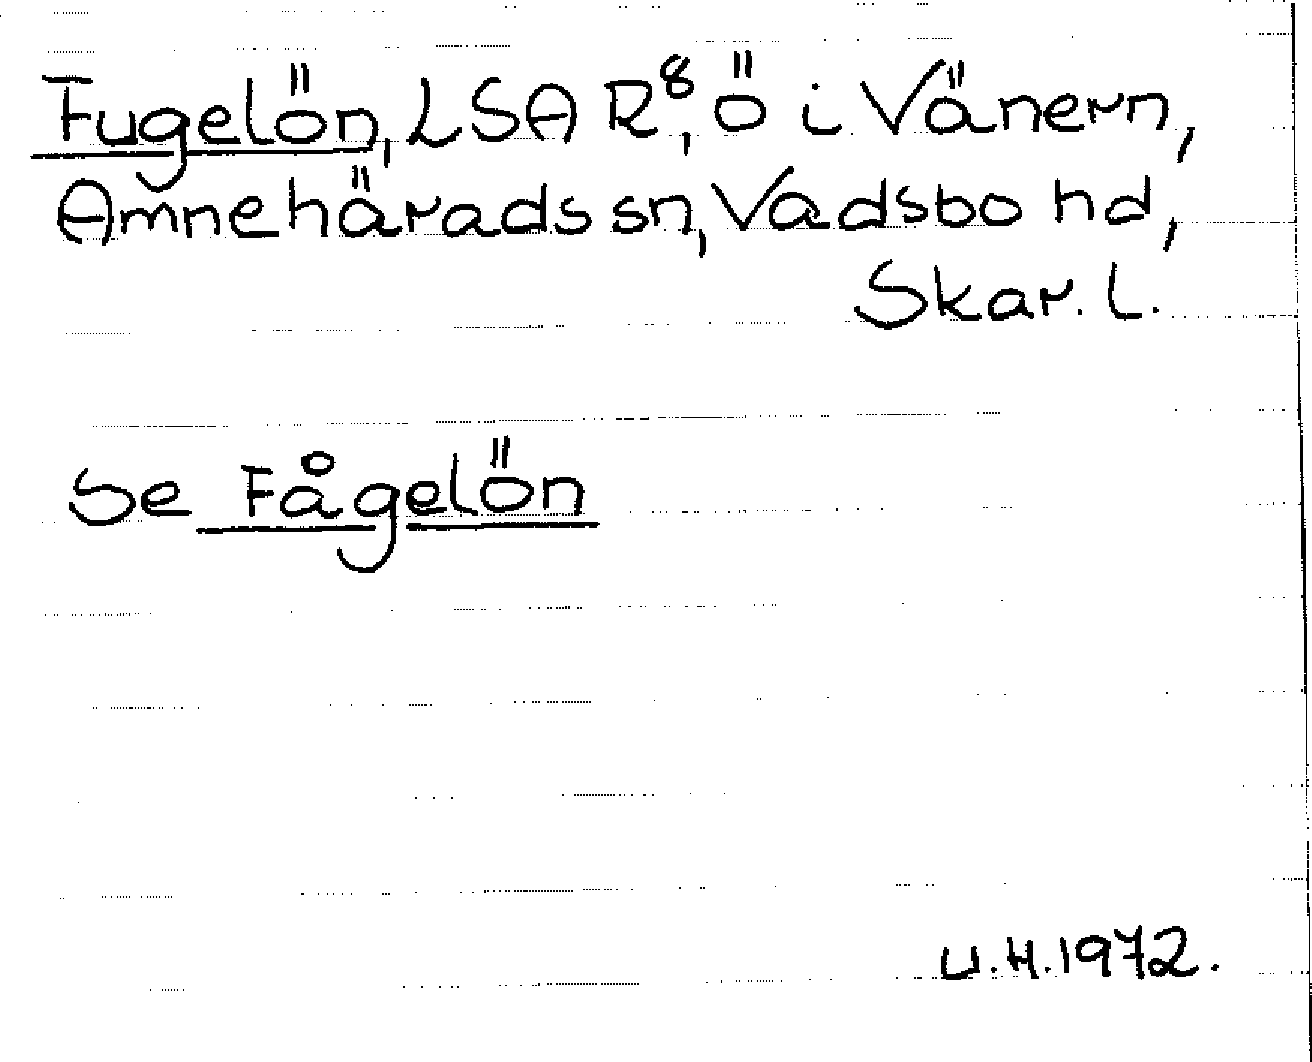 Fugelön, LSA R⁸, ö i Vänern,
Amnehärads sn, Vadsbo hd,
Skar. l.
Se Fågelön
U.H.1972.